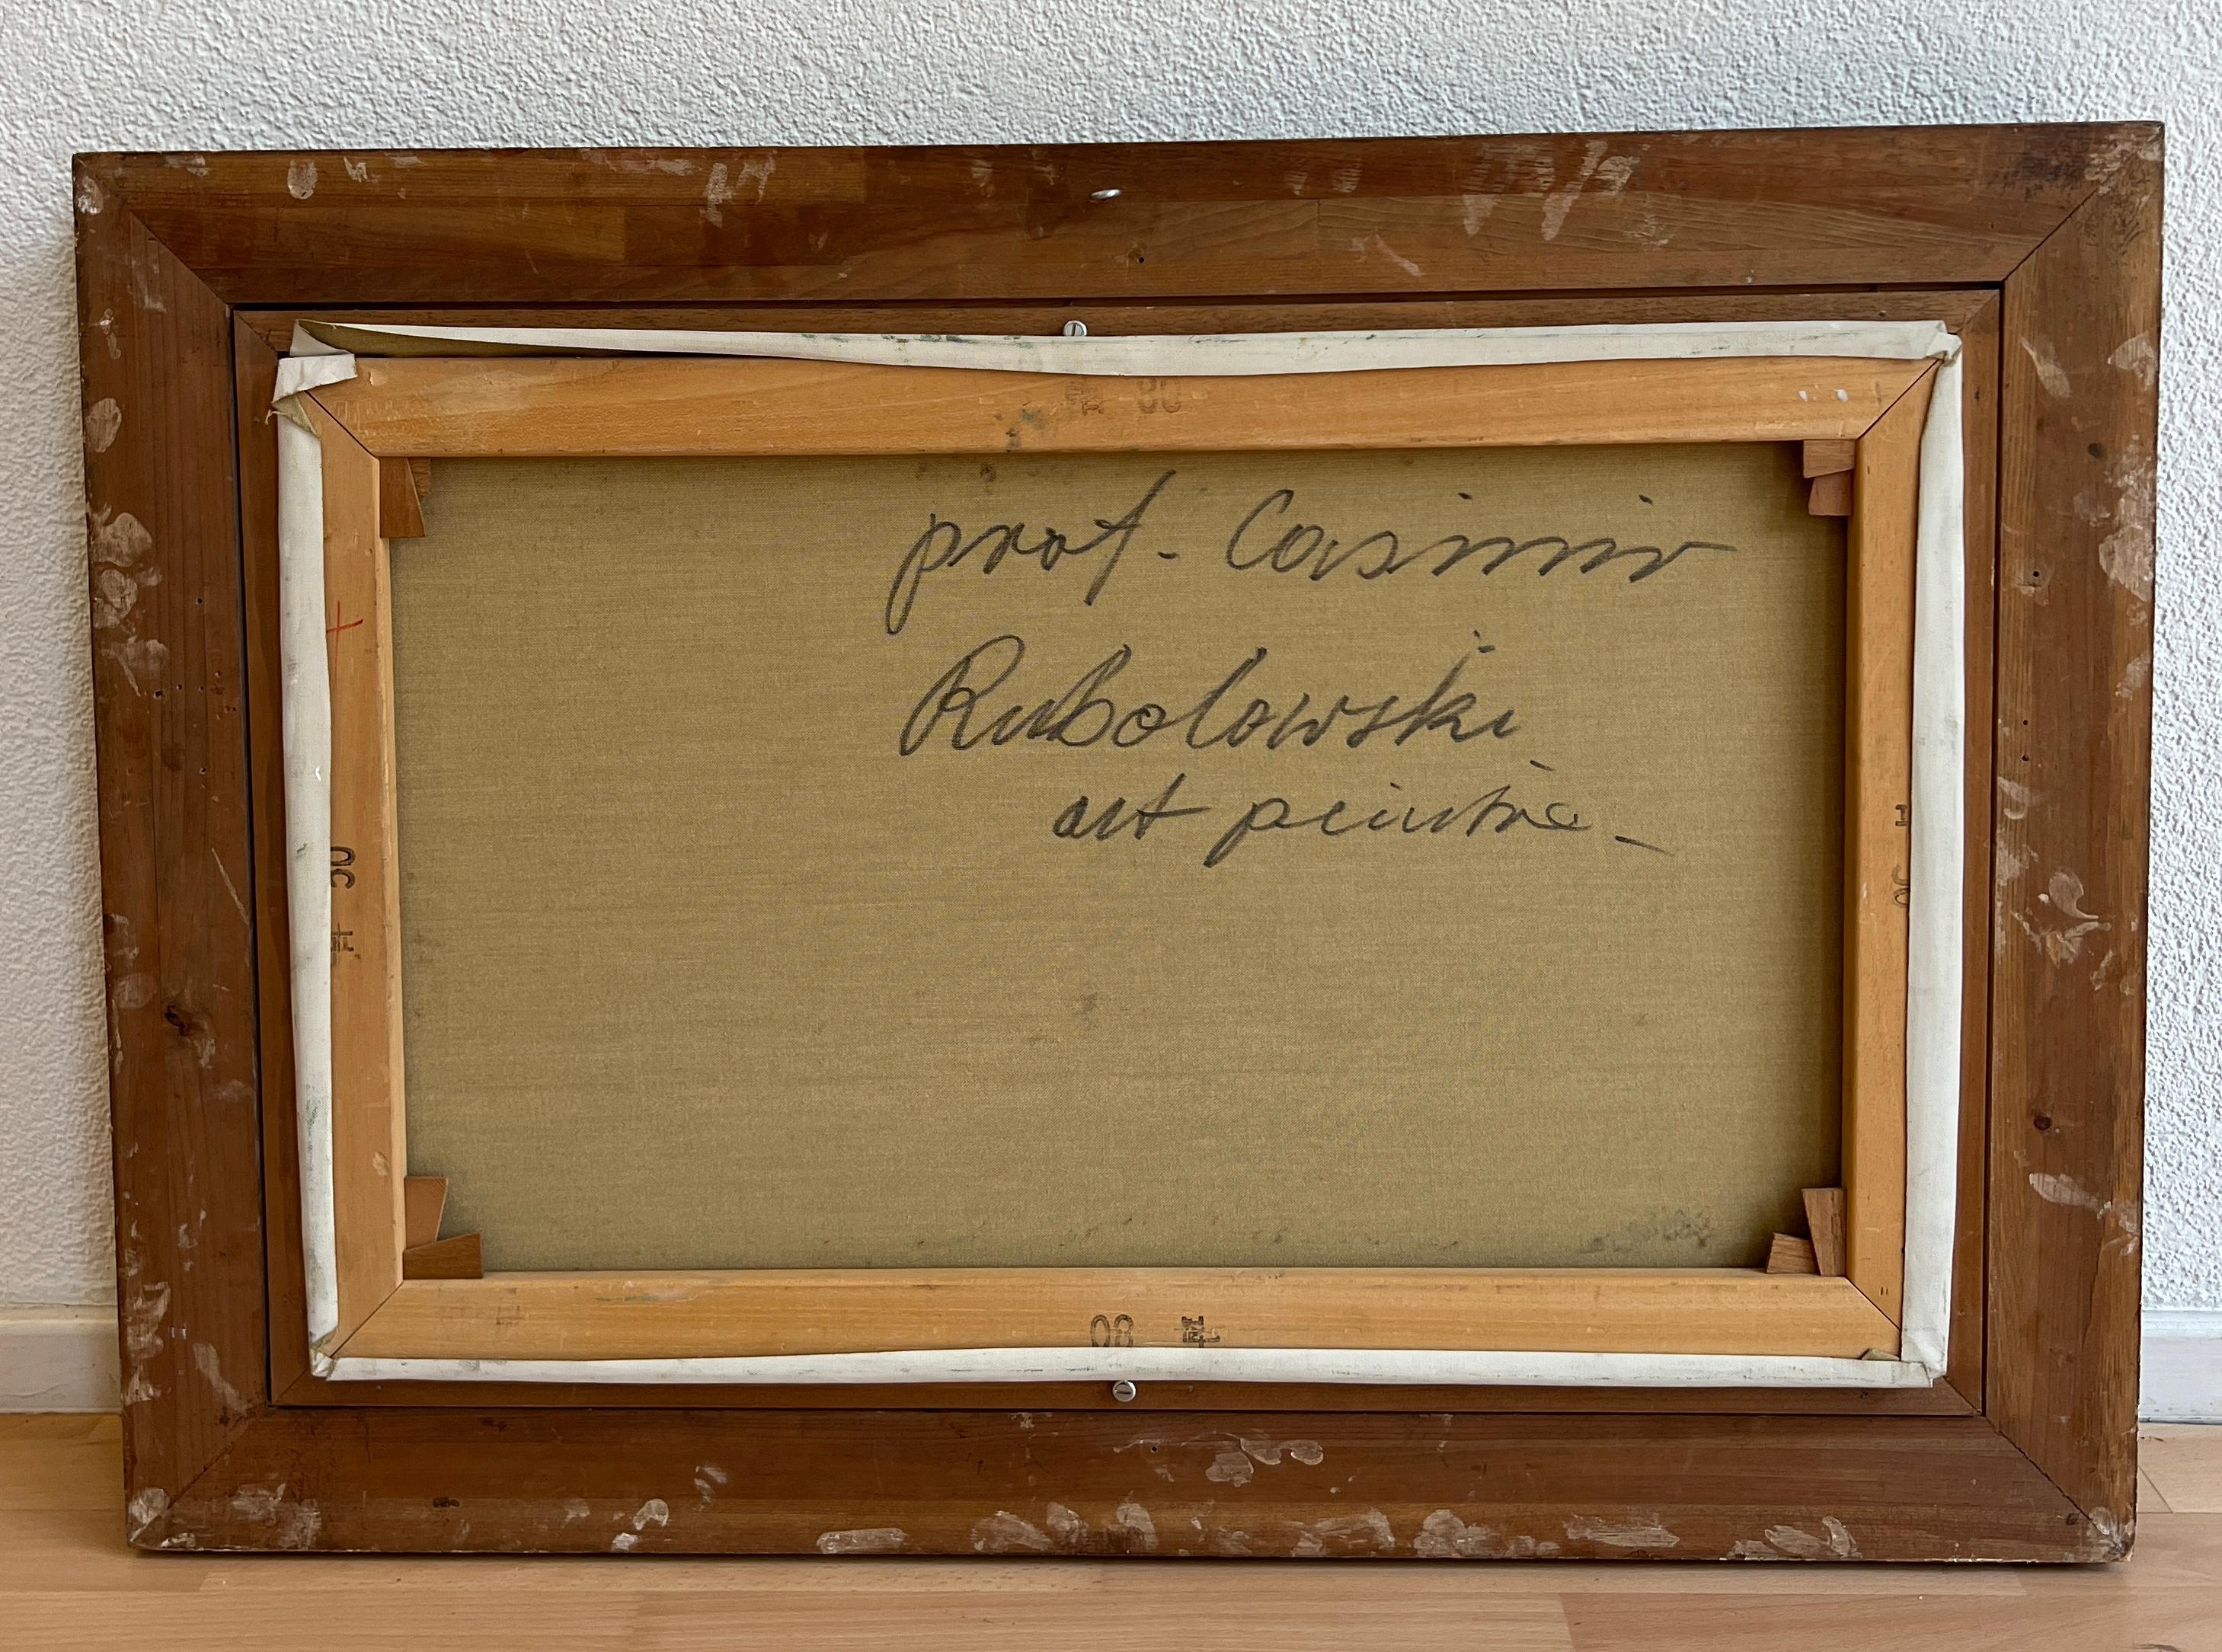 80
prof. Casimir
Rubolowski
art peintre
50
50
80